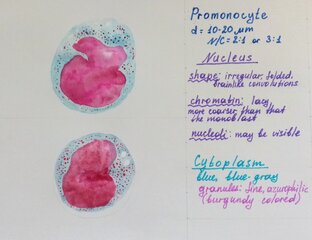 Promonocyte
d = 10-20 µm
N/C = 2:1 or 3:1
Nucleus
shape: irregular, folded,
brainlike convolutions
chromatin: lacy,
more coarser than that
the monoblast
nucleoli: may be visible
Cytoplasm
blue, blue-gray
granules: fine, azurophilic
(burgundy colored)